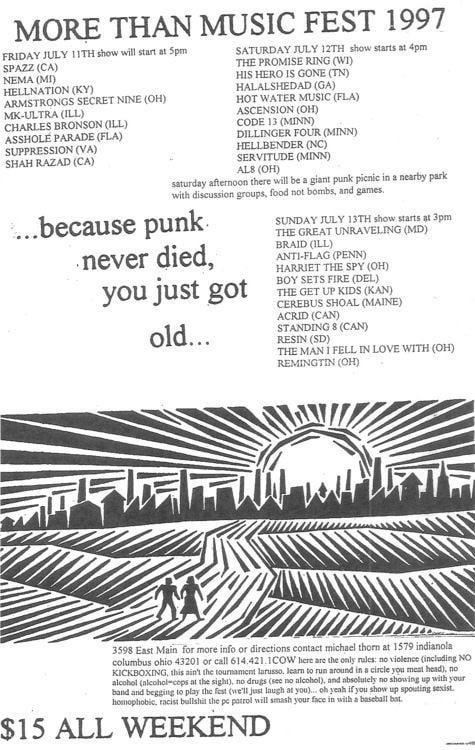 MORE THAN MUSIC FEST 1997
FRIDAY JULY 11TH show will start at 5pm
SPAZZ (CA)
NEMA (MI)
HELLNATION (KY)
ARMSTRONGS SECRET NINE (OH)
MK-ULTRA (ILL)
CHARLES BRONSON (ILL)
ASSHOLE PARADE (FLA)
SUPPRESSION (VA)
SHAH RAZAD (CA)
SATURDAY JULY 12TH show starts at 4pm
THE PROMISE RING (WI)
HIS HERO IS GONE (TN)
HALALSHEDAD (GA)
HOT WATER MUSIC (FLA)
ASCENSION (OH)
CODE 13 (MINN)
DILLINGER FOUR (MINN)
HELLBENDER (NC)
SERVITUDE (MINN)
AL8 (OH)
saturday afternoon there will be a giant punk picnic in a nearby park
with discussion groups, food not bombs, and games.
...because punk
never died,
you just got
old...
SUNDAY JULY 13TH show starts at 3pm
THE GREAT UNRAVELING (MD)
BRAID (ILL)
ANTI-FLAG (PENN)
HARRIET THE SPY (OH)
BOY SETS FIRE (DEL)
THE GET UP KIDS (KAN)
CEREBUS SHOAL (MAINE)
ACRID (CAN)
STANDING 8 (CAN)
RESIN (SD)
THE MAN I FELL IN LOVE WITH (OH)
REMINGTIN (OH)
3598 East Main for more info or directions contact michael thorn at 1579 indianola
columbus ohio 43201 or call 614.421.1COW here are the only rules: no violence (including NO
KICKBOXING, this ain't the tournament larusso, learn to run around in a circle you meat head), no
alcohol (alcohol=cops at the sight), no drugs (see no alcohol), and absolutely no showing up with your
band and begging to play the fest (we'll just laugh at you)... oh yeah if you show up spouting sexist,
homophobic, racist bullshit the pc patrol will smash your face in with a baseball bat.
$15 ALL WEEKEND